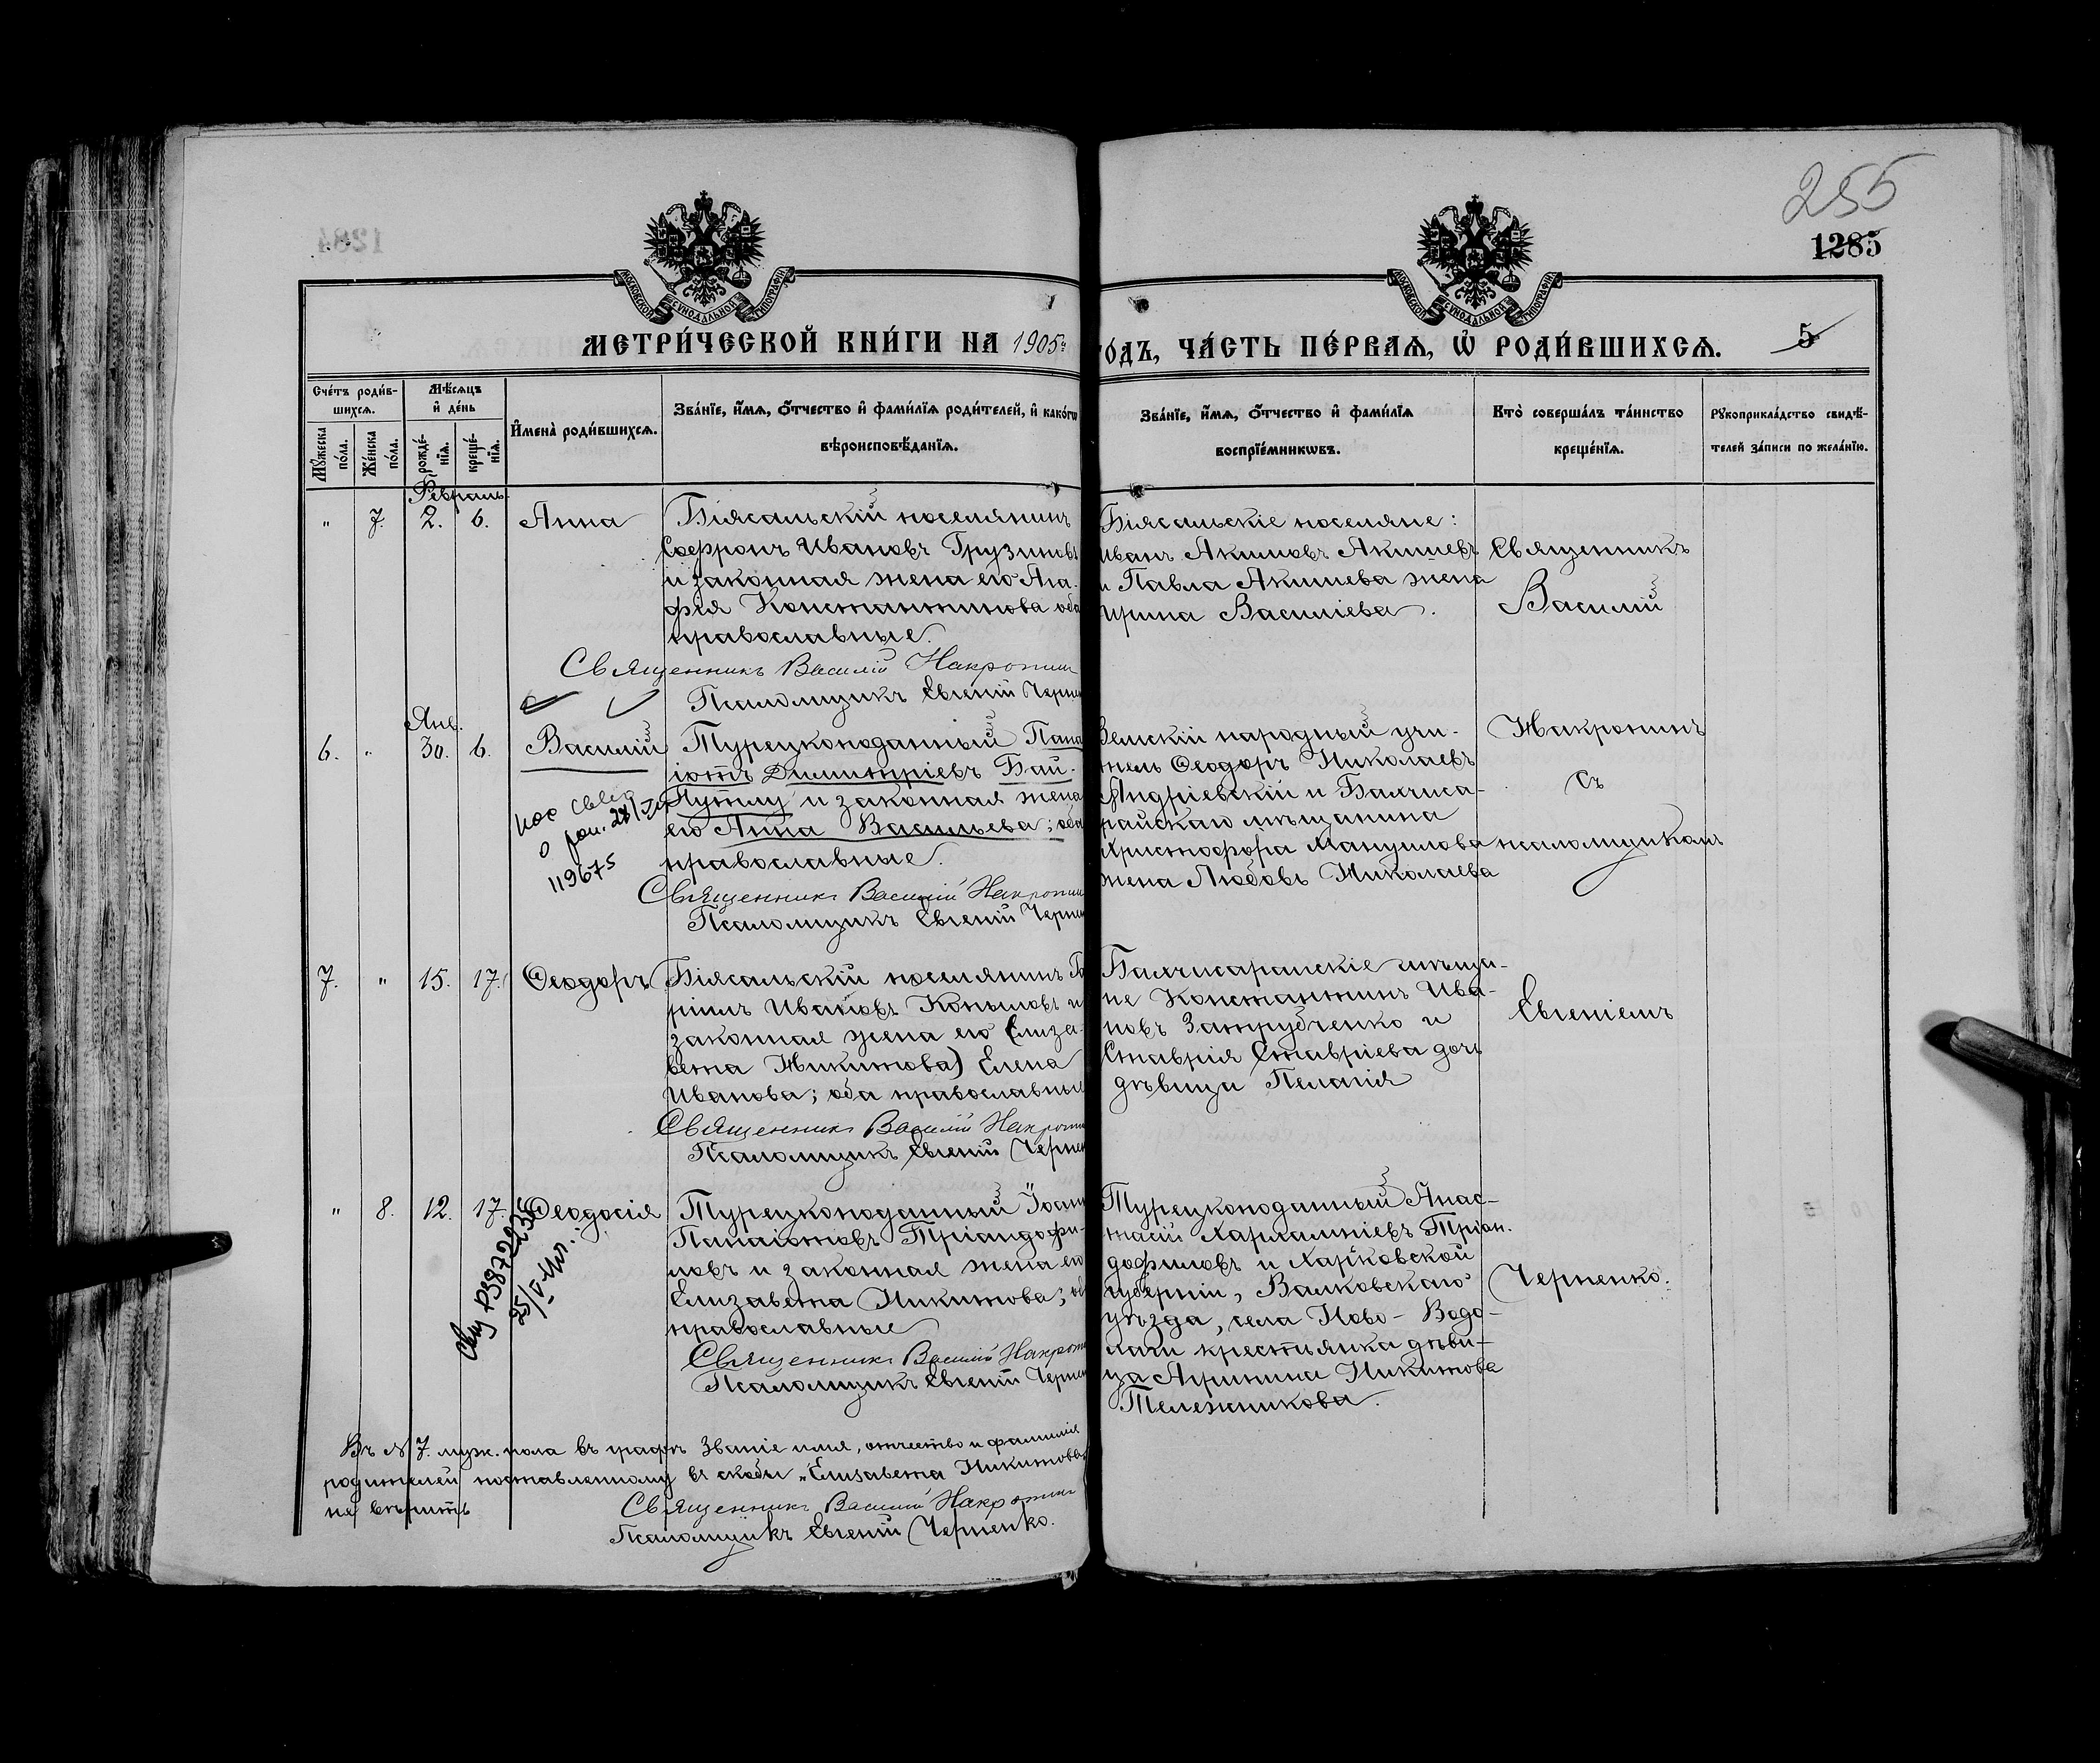 255
1284
1285
МОСКОВСКОЙ СѴНОДАЛЬНОЙ ТИПОГРАФІИ
МОСКОВСКОЙ СѴНОДАЛЬНОЙ ТИПОГРАФІИ
МЕТРИ́ЧЕСКОЙ КНИ́ГИ НА 1905й
ГО́ДЪ, ЧА́СТЬ ПЕ́РВАѦ, Ѡ РОДИ́ВШИХСѦ.
5
Сче́тъ роди́в-
шихсѧ.
Мѣ́сѧцъ
и҆ де́нь
Мꙋ́жеска
по́ла.
Же́нска
по́ла.
рожде́-
нїѧ.
креще́-
нїѧ.
И҆мена̀ роди́вшихсѧ.
Зва́нїе, и҆́мѧ, ѻ҆́тчество и҆ фами́лїѧ роди́телей, и҆ како́гѡ
вѣроисповѣ́данїѧ.
Зва́нїе, и҆́мѧ, ѻ҆́тчество и҆ фами́лїѧ
воспрїе́мникѡвъ.
Кто̀ соверша́лъ та́инство
креще́нїѧ.
Рꙋкоприкла́дство свидѣ́-
телей за́писи по жела́нїю.
Февраль
" 7. 2. 6. Анна
Біясальскій поселянинъ
Софронъ Ивановъ Грузиновъ
и законная жена его Ага-
фія Константинова оба
православные.
Священникъ Василій Накропин
Псаломщикъ Евгеній Черне
Біясальскіе поселяне:
Иванъ Акимовъ Акишевъ
и Павла Акишева жена
Ирина Василіева.
Священникъ
Василій
Янв.
6. " 30. 6. Василій
Турецкоподанный Пана
іотъ Димитріевъ Бай-
Путлу и законная жена
его Анна Васильева; оба
православные.
119675
Священникъ Василій Накропин
Псаломщикъ Евгеній Черне
Земскій народный учи-
тель Ѳеодоръ Николаевъ
Андріевскій и Бахчиса-
райскаго мѣщанина
Христофора Мануилова
жена Любовь Николаева
Накропинъ
съ
псаломщикомъ
7. " 15. 17. Ѳеодоръ
Біясальскій поселянинъ Га
ріилъ Ивановъ Копыловъ и
законная жена его (Елиза-
вета Никитова) Елена
Иванова; оба православные
Священникъ Василій Накропи
Псаломщикъ Евгеній Черне
Бахчисарайскіе мѣща-
не Константинъ Ива-
новъ Затрубченко и
Ставрія Ставріева дочь
дѣвица Пелагія
Евгеніемъ
" 8. 12. 17. Ѳеодосія
Турецкоподанный Іоан
Панаіотовъ Тріандофи-
ловъ и законная жена его
Елизавета Никитова; об
православные
Священникъ Василій Накропи
Псаломщикъ Евгеній Черне
Турецкоподанный Анас-
тасій Харлампіевъ Тріан-
дофиловъ и Харьковской
губерніи, Валковскаго
уѣзда, села Ново-Водо-
лаги крестьянка дѣви-
ца Агрипина Никитова
Тележникова.
Черненко.
Въ № 7 муж. пола въ графѣ Званіе имя, отчество и фамилія
родителей поставленному въ скобы „Елизавета Никитова"
не вѣрить
Священникъ Василій Накропин
Псаломщикъ Евгеній Черненко.